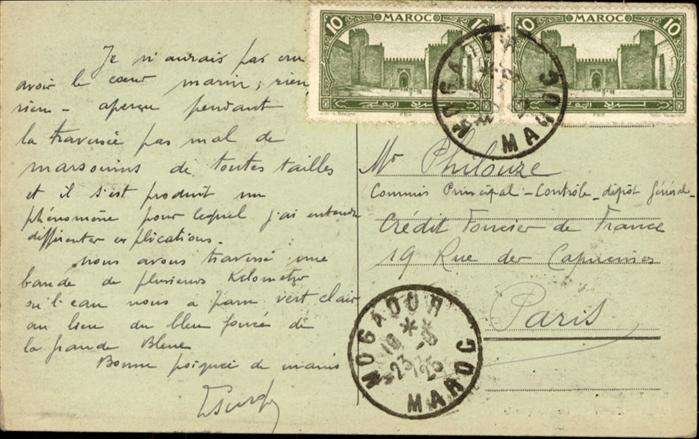 10 MAROC 10
10 MAROC 10
MOGADOR
MAROC
Je n'aurais pas cru
avoir le cœur marin ; rien
rien - aperçu pendant
la traversée pas mal de
marsouins de toutes tailles
et il s'est produit un
phénomène pour lequel j'ai entendu
différentes explications.
Nous avons traversé une
bande de plusieurs Kilometres
où l'eau nous a paru vert clair
au lieu du bleu foncé de
la grande Bleue
Bonne poignée de mains
Mr Philouze
Commis Principal - Contrôle - dépôt Général
Crédit Foncier de France
19 Rue des Capucines
Paris
MOGADOR
18
23 -6
25
MAROC